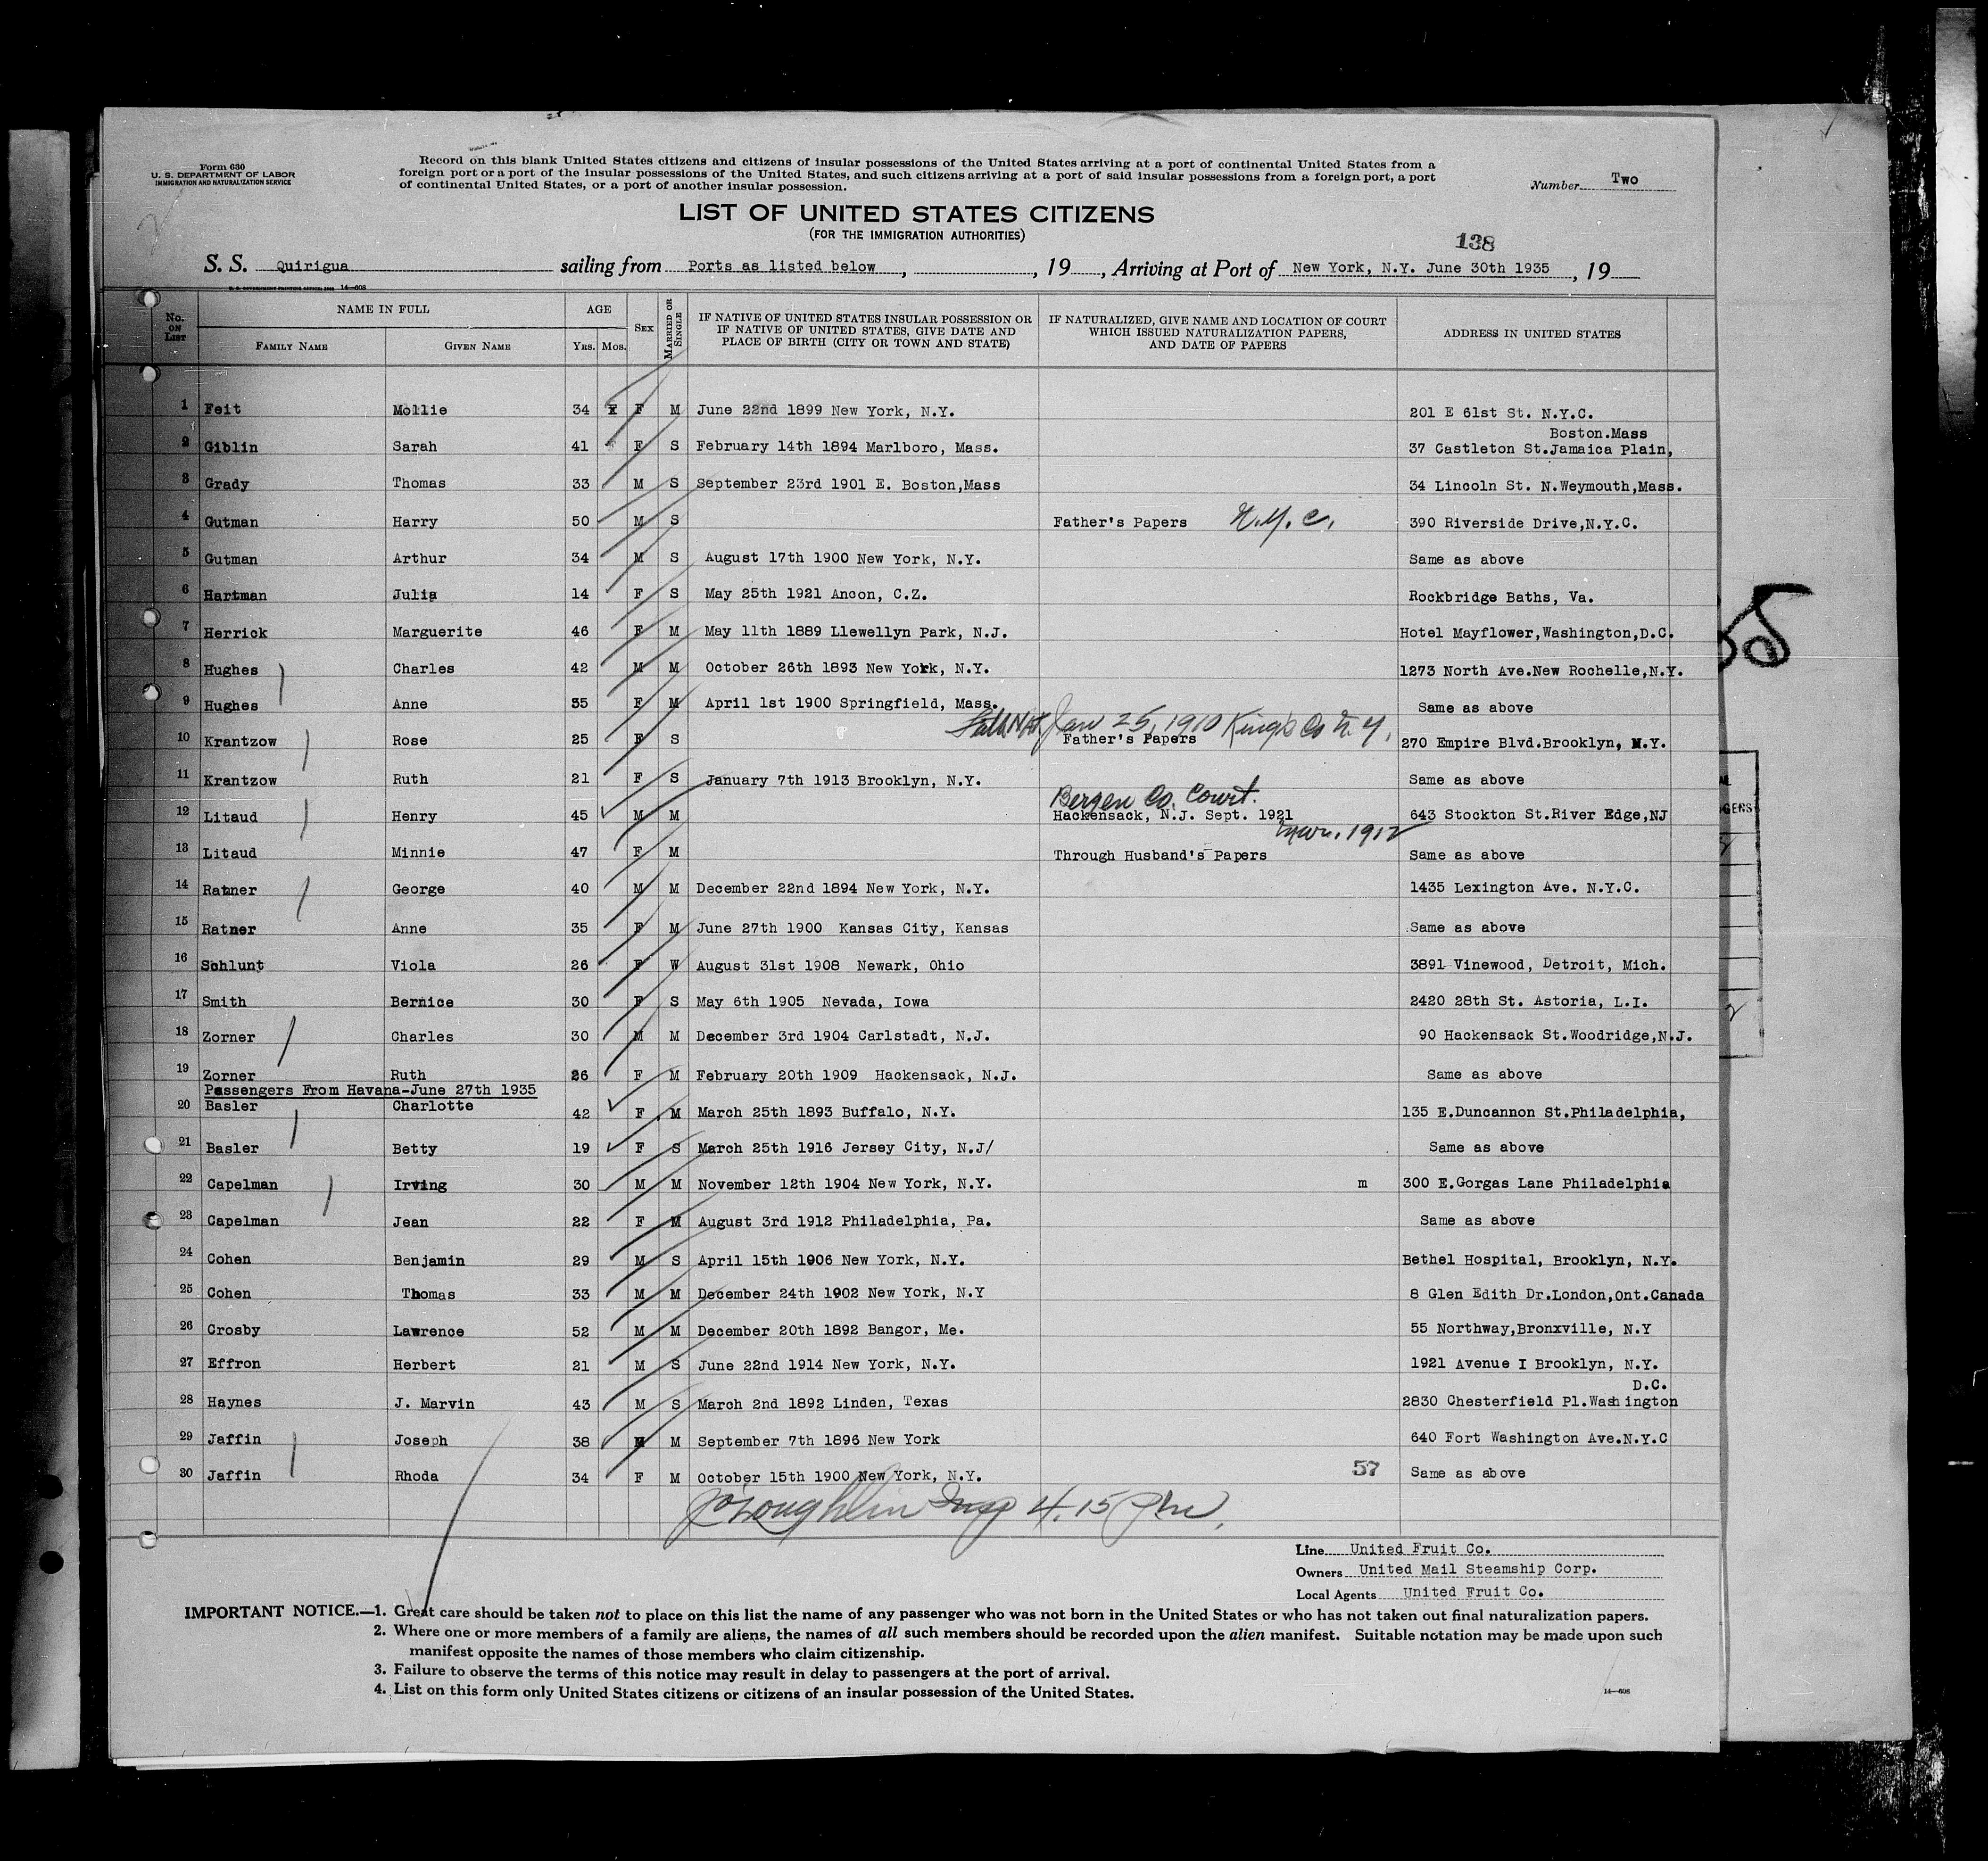 Form 630
U. S. DEPARTMENT OF LABOR
IMMIGRATION AND NATURALIZATION SERVICE
Record on this blank United States citizens and citizens of insular possessions of the United States arriving at a port of continental United States from a
foreign port or a port of the insular possessions of the United States, and such citizens arriving at a port of said insular possessions from a foreign port, a port
of continental United States, or a port of another insular possession.
Number Two
LIST OF UNITED STATES CITIZENS
(FOR THE IMMIGRATION AUTHORITIES)
138
S. S. Quirigua sailing from Ports as listed below , , 19 , Arriving at Port of New York, N.Y. June 30th 1935 , 19
14—608
No. ON LIST NAME IN FULL AGE SEX MARRIED OR SINGLE IF NATIVE OF UNITED STATES INSULAR POSSESSION OR IF NATIVE OF UNITED STATES, GIVE DATE AND PLACE OF BIRTH (CITY OR TOWN AND STATE) IF NATURALIZED, GIVE NAME AND LOCATION OF COURT WHICH ISSUED NATURALIZATION PAPERS, AND DATE OF PAPERS ADDRESS IN UNITED STATES
FAMILY NAME GIVEN NAME YRS. MOS.
1 Feit Mollie 34 F M June 22nd 1899 New York, N.Y. 201 E 61st St. N.Y.C.
Boston.Mass
2 Giblin Sarah 41 F S February 14th 1894 Marlboro, Mass. 37 Castleton St.Jamaica Plain,
3 Grady Thomas 33 M S September 23rd 1901 E. Boston,Mass 34 Lincoln St. N.Weymouth,Mass.
4 Gutman Harry 50 M S Father's Papers N.Y.C. 390 Riverside Drive,N.Y.C.
5 Gutman Arthur 34 M S August 17th 1900 New York, N.Y. Same as above
6 Hartman Julia 14 F S May 25th 1921 Ancon, C.Z. Rockbridge Baths, Va.
7 Herrick Marguerite 46 F M May 11th 1889 Llewellyn Park, N.J. Hotel Mayflower,Washington,D.C.
8 Hughes Charles 42 M M October 26th 1893 New York, N.Y. 1273 North Ave.New Rochelle,N.Y.
9 Hughes Anne 35 F M April 1st 1900 Springfield, Mass. Same as above
Jan 25, 1910 Kings Co N.Y.
10 Krantzow Rose 25 F S Father's Papers 270 Empire Blvd.Brooklyn, N.Y.
11 Krantzow Ruth 21 F S January 7th 1913 Brooklyn, N.Y. Same as above
Bergen Co. Court.
12 Litaud Henry 45 M M Hackensack, N.J. Sept. 1921 643 Stockton St.River Edge,NJ
mar. 1912
13 Litaud Minnie 47 F M Through Husband's Papers Same as above
14 Ratner George 40 M M December 22nd 1894 New York, N.Y. 1435 Lexington Ave. N.Y.C.
15 Ratner Anne 35 F M June 27th 1900 Kansas City, Kansas Same as above
16 Schlunt Viola 26 F W August 31st 1908 Newark, Ohio 3891 Vinewood, Detroit, Mich.
17 Smith Bernice 30 F S May 6th 1905 Nevada, Iowa 2420 28th St. Astoria, L.I.
18 Zorner Charles 30 M M December 3rd 1904 Carlstadt, N.J. 90 Hackensack St.Woodridge,N.J.
19 Zorner Ruth 26 F M February 20th 1909 Hackensack, N.J. Same as above
Passengers From Havana-June 27th 1935
20 Basler Charlotte 42 F M March 25th 1893 Buffalo, N.Y. 135 E.Duncannon St.Philadelphia,
21 Basler Betty 19 F S March 25th 1916 Jersey City, N.J/ Same as above
22 Capelman Irving 30 M M November 12th 1904 New York, N.Y. m 300 E.Gorgas Lane Philadelphia
23 Capelman Jean 22 F M August 3rd 1912 Philadelphia, Pa. Same as above
24 Cohen Benjamin 29 M S April 15th 1906 New York, N.Y. Bethel Hospital, Brooklyn, N.Y.
25 Cohen Thomas 33 M M December 24th 1902 New York, N.Y 8 Glen Edith Dr.London,Ont.Canada
26 Crosby Lawrence 52 M M December 20th 1892 Bangor, Me. 55 Northway,Bronxville, N.Y
27 Effron Herbert 21 M S June 22nd 1914 New York, N.Y. 1921 Avenue I Brooklyn, N.Y.
D.C.
28 Haynes J. Marvin 43 M S March 2nd 1892 Linden, Texas 2830 Chesterfield Pl.Washington
29 Jaffin Joseph 38 M M September 7th 1896 New York 640 Fort Washington Ave.N.Y.C
30 Jaffin Rhoda 34 F M October 15th 1900 New York, N.Y. 57 Same as above
O'Loughlin Insp 4.15 Pm.
Line United Fruit Co.
Owners United Mail Steamship Corp.
Local Agents United Fruit Co.
IMPORTANT NOTICE.—1. Great care should be taken not to place on this list the name of any passenger who was not born in the United States or who has not taken out final naturalization papers.
2. Where one or more members of a family are aliens, the names of all such members should be recorded upon the alien manifest. Suitable notation may be made upon such
manifest opposite the names of those members who claim citizenship.
3. Failure to observe the terms of this notice may result in delay to passengers at the port of arrival.
4. List on this form only United States citizens or citizens of an insular possession of the United States.
14—608